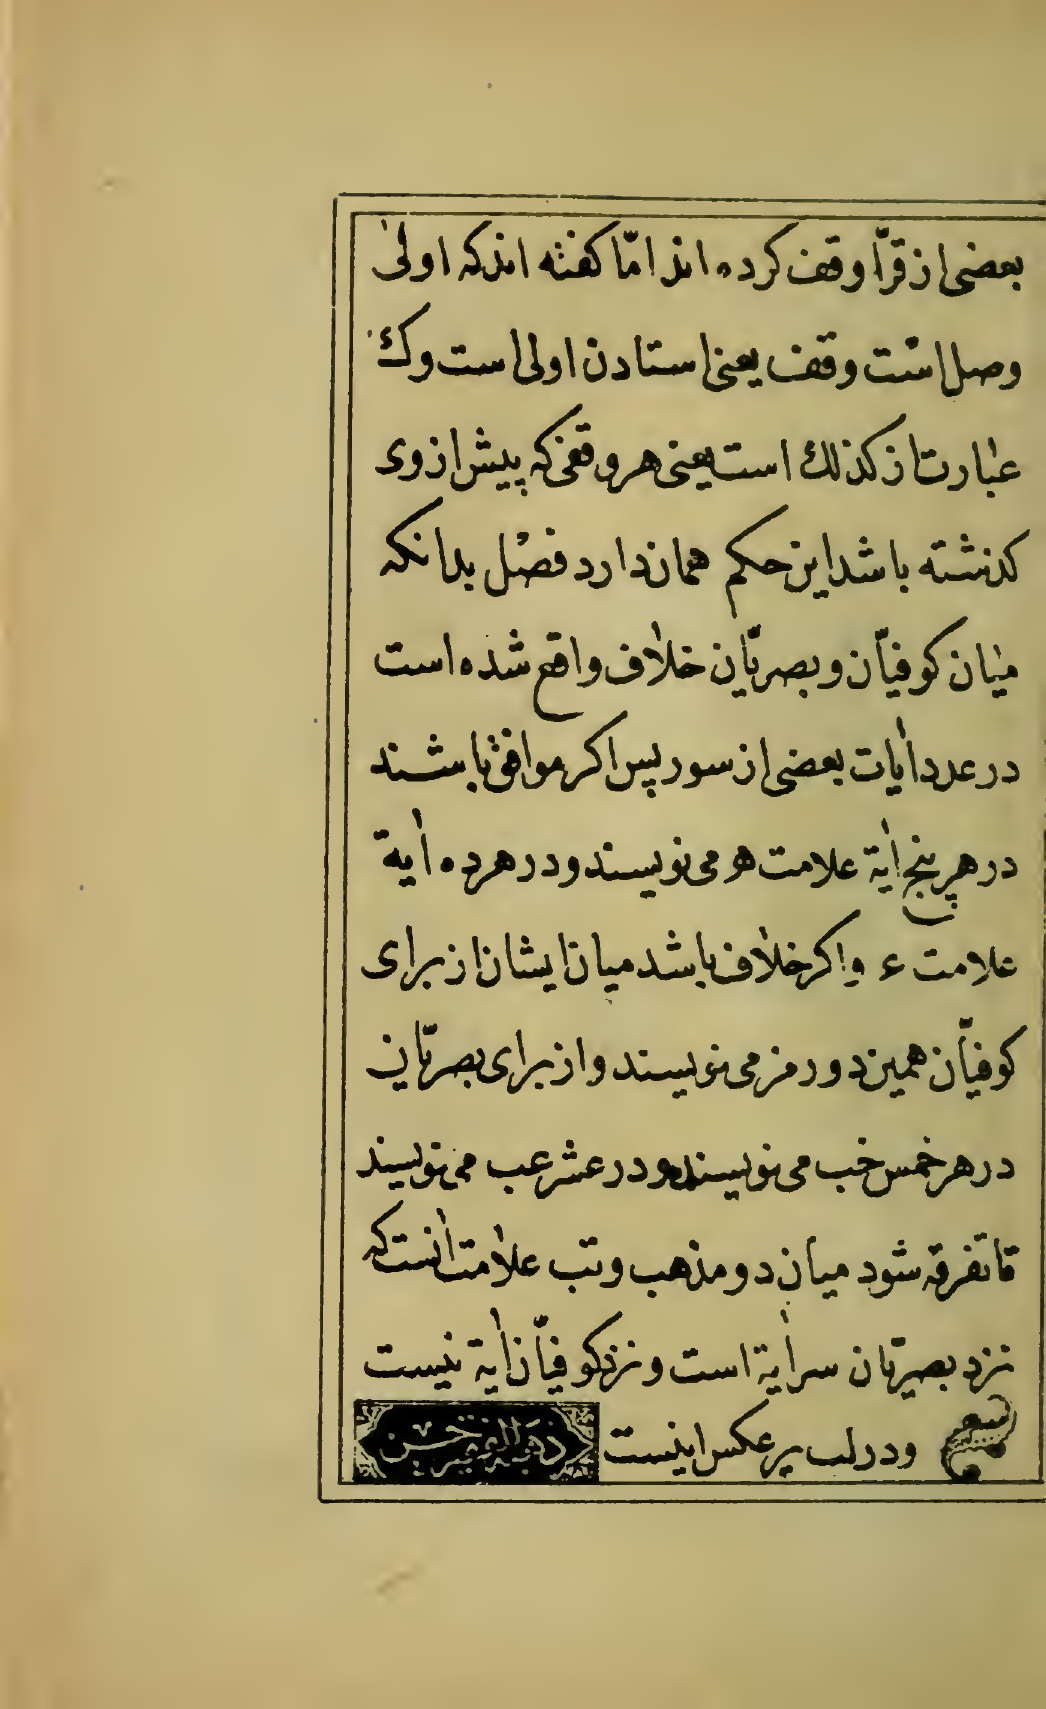 بعضی از قرّا وقف کرده اند امّا کفته اند که اولیٰ
وصل است وقف یعنی استادن اولی است وک
عبارت از کذلك است یعنی هر وقفی که پیش از وی
کذشته باشد این حکم همان دارد فصل بدانکه
میان کوفیّان و بصریّان خلاف واقع شده است
در عدد اٰیات بعضی از سور پس اکر موافق باشند
در هر پنج اٰیة علامت هو می نویسند و در هر ده اٰیة
علامت ء و اکر خلاف باشد میان ایشان از برای
کوفیّان همین دو رمز می نویسند و از برای بصریّان
در هر خمس خب می نویسند و در عشر عب می نویسند
تا تفرقه شود میان دو مذهب و تب علامت اٰنست که
نزد بصریّان سر اٰیة است و نزد کوفیّان اٰیة نیست
و در لب بر عکس اینست